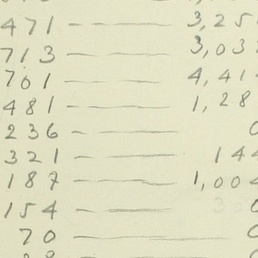 471 — — — 3,25
713 — — — 3,03
701 — — — 4,41
481 — — — 1,28
236 — — — 0
321 — — — 144
187 — — — 1,004
154 — — — 0
70 — — — 0